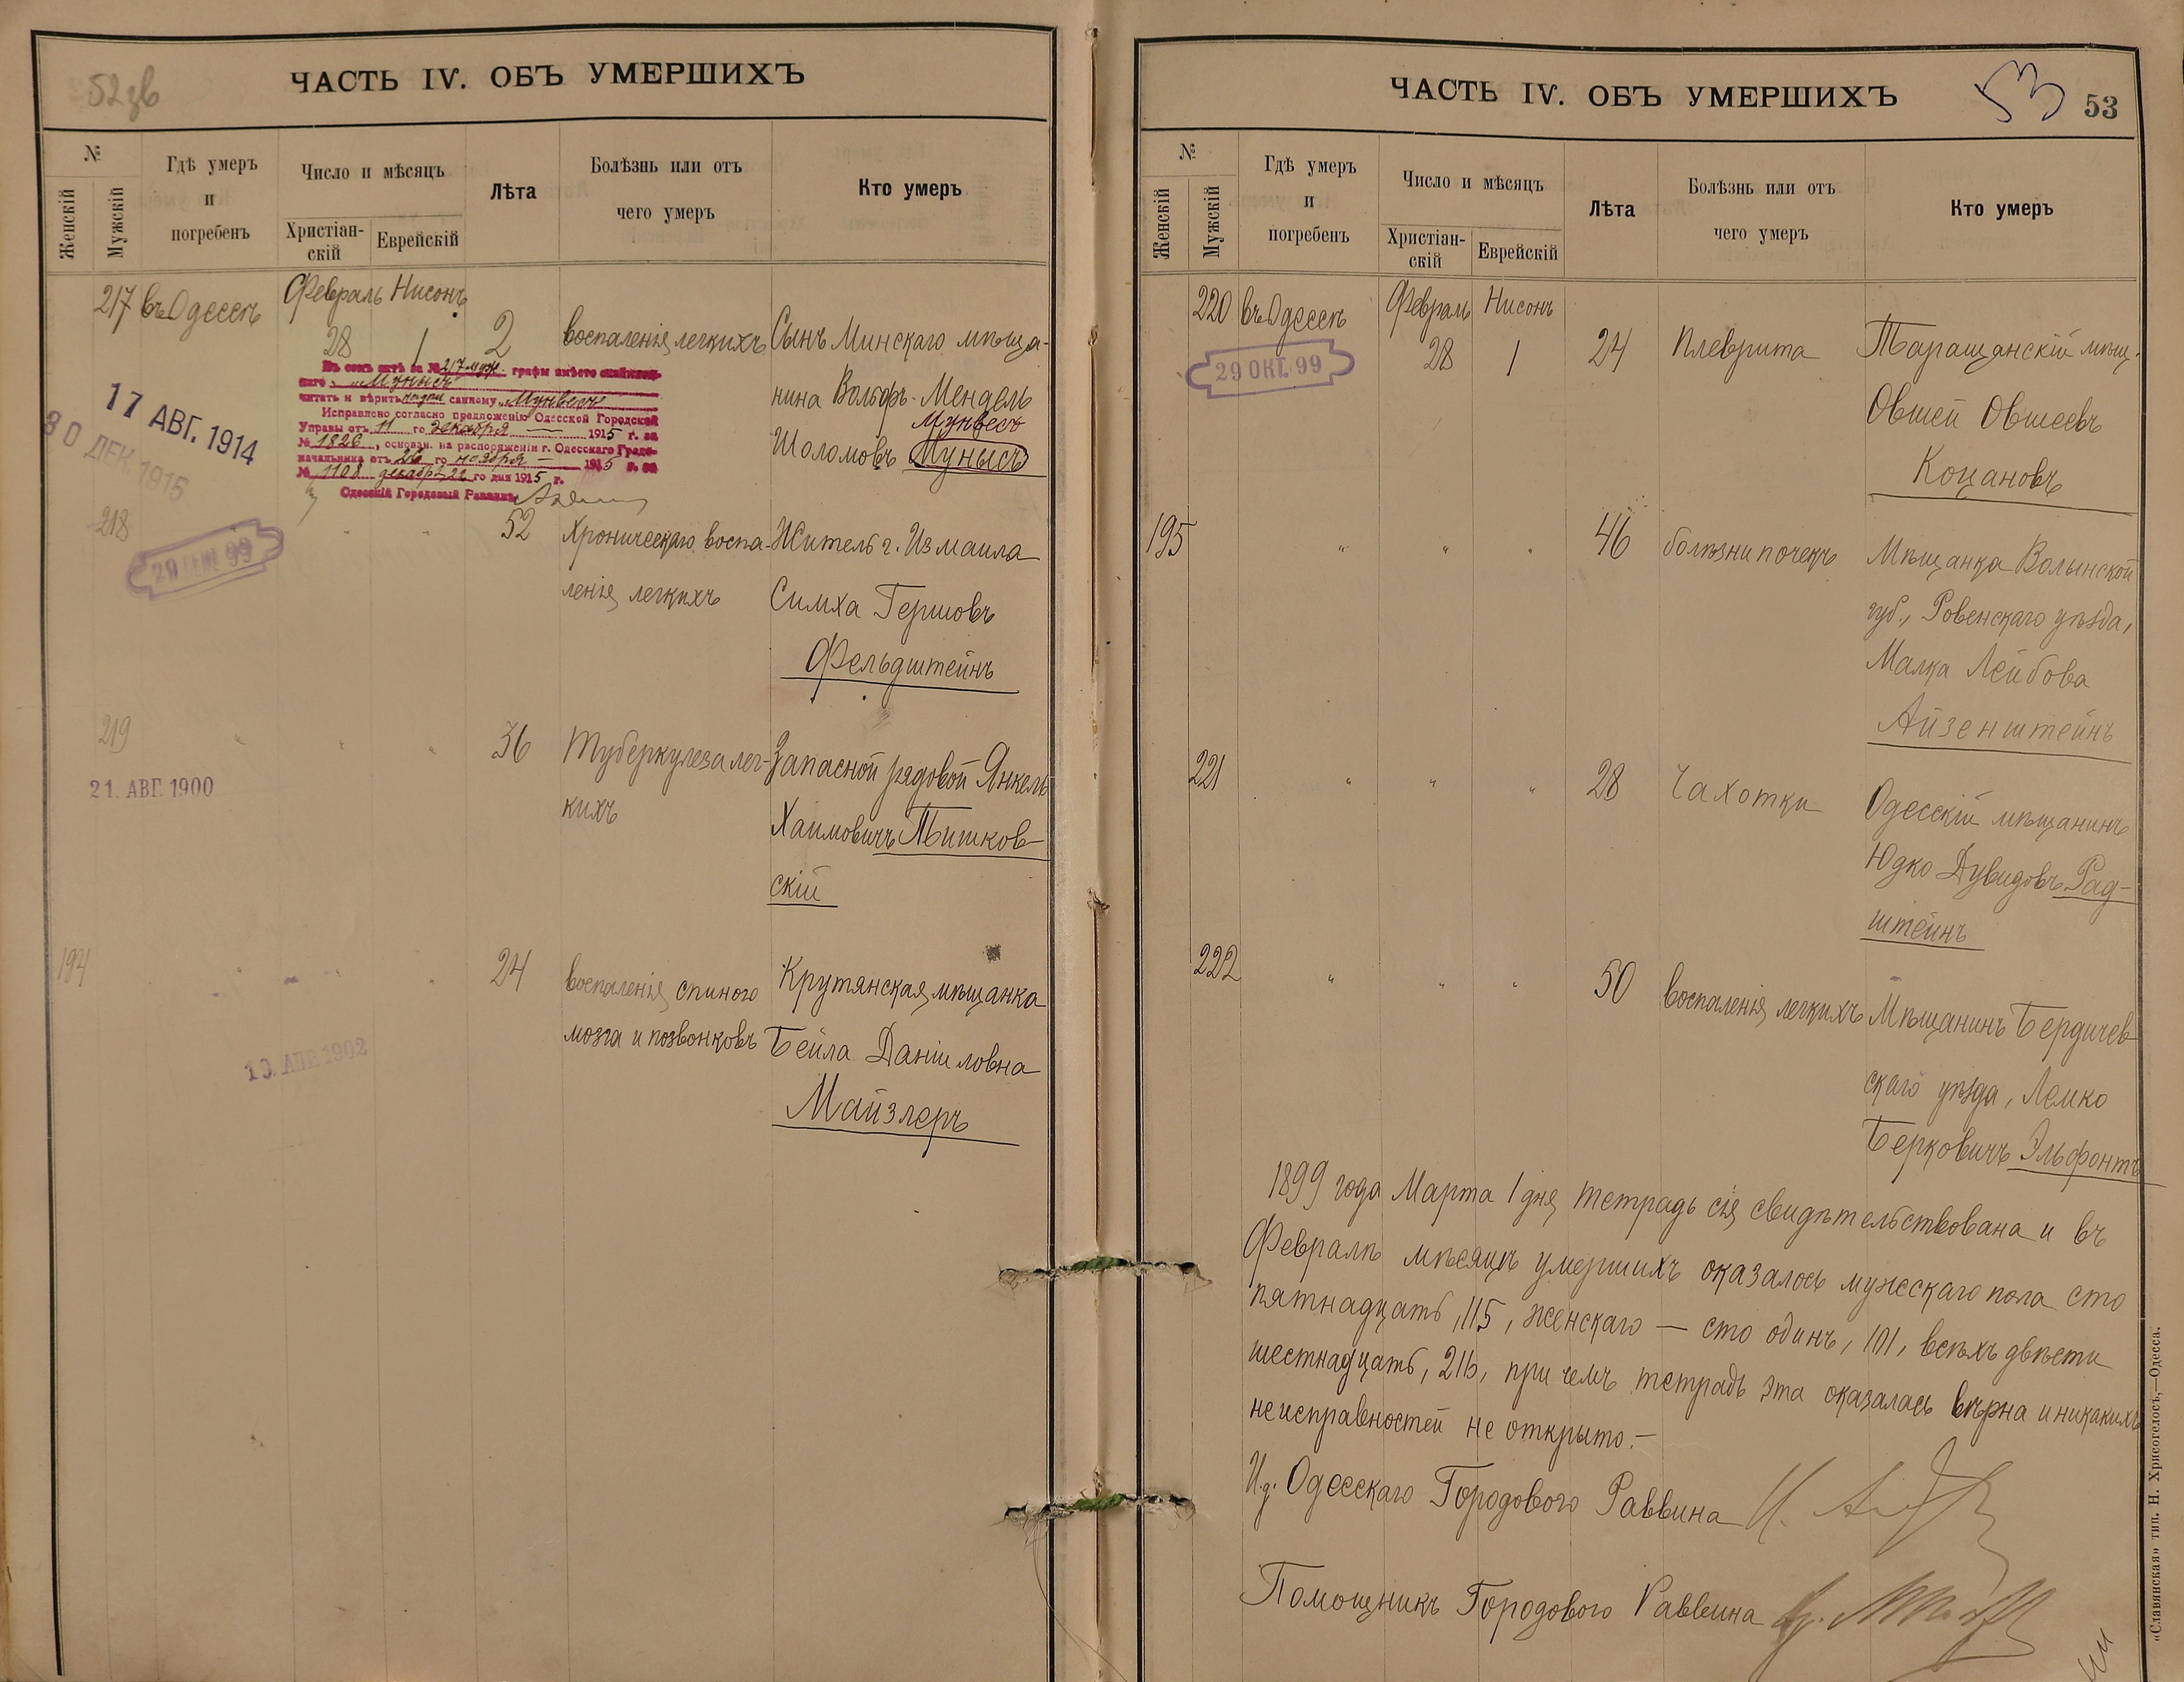 52 зв
ЧАСТЬ IV. ОБЪ УМЕРШИХЪ
№
Женскій
Мужскій
Гдѣ умеръ
и
погребенъ
Число и мѣсяцъ
Христіан-
скій
Еврейскій
Лѣта
Болѣзнь или отъ
чего умеръ
Кто умеръ
217 въ Одессѣ Февраль Нисонъ
28 1 2 воспаленія легкихъ Сынъ Минскаго мѣща-
нина Вольфъ-Мендель
Мунвесъ
Шоломовъ Мунысъ
Въ семъ актѣ за № 217 муж. графы вмѣсто
"Мунысъ"
читать и вѣрить "Мунвесъ"
Исправлено согласно предложенію Одесской Городской
Управы отъ 11 го декабря 1915 г. за
№ 1826, основан. на распоряженіи г. Одесскаго Градо-
начальника отъ 26 го ноября 1915 г. за
№ 1108 декабря 22 го дня 1915 г.
Одесскій Городовый Раввинъ
17 АВГ. 1914
30 ДЕК 1915
218 " " 52 Хроническаго воспа- Житель г. Измаила
ленія легкихъ Симха Гершовъ
Фельдштейнъ
219 " " " 36 Туберкулеза лег- Запасной рядовой Янкель
кихъ Хаимовичъ Питков-
скій
21. АВГ. 1900
194 " " " 24 воспаленія спиного Крутянская мѣщанка
мозга и позвонковъ Бейла Даніиловна
Майзлеръ
13. АПР. 1902
ЧАСТЬ IV. ОБЪ УМЕРШИХЪ
53
53
№
Женскій
Мужскій
Гдѣ умеръ
и
погребенъ
Число и мѣсяцъ
Христіан-
скій
Еврейскій
Лѣта
Болѣзнь или отъ
чего умеръ
Кто умеръ
220 въ Одессѣ Февраль Нисонъ
28 1 24 Плеврита Таращанскій мѣщ.
29 ОКТ. 99
Овшей Овшеевъ
Коцановъ
195 " " " 46 болѣзни почекъ Мѣщанка Волынской
губ., Ровенскаго уѣзда,
Малка Лейбова
Айзенштейнъ
221 " " " 28 Чахотки Одесскій мѣщанинъ
Юдко Дувидовъ Рад-
штейнъ
222 " " " 50 воспаленія легкихъ Мѣщанинъ Бердичев-
скаго уѣзда, Лемко
Берковичъ Эльфонтъ
1899 года Марта 1 дня тетрадь сія свидѣтельствована и въ
Февралѣ мѣсяцѣ умершихъ оказалось мужескаго пола сто
пятнадцать, 115, женскаго — сто одинъ, 101, всѣхъ двѣсти
шестнадцать, 216, при чемъ тетрадь эта оказалась вѣрна и никакихъ
неисправностей не открыто.—
И. д. Одесскаго Городового Раввина
Помощникъ Городового Раввина
«Славянская» тип. Н. Хрисогелосъ,—Одесса.